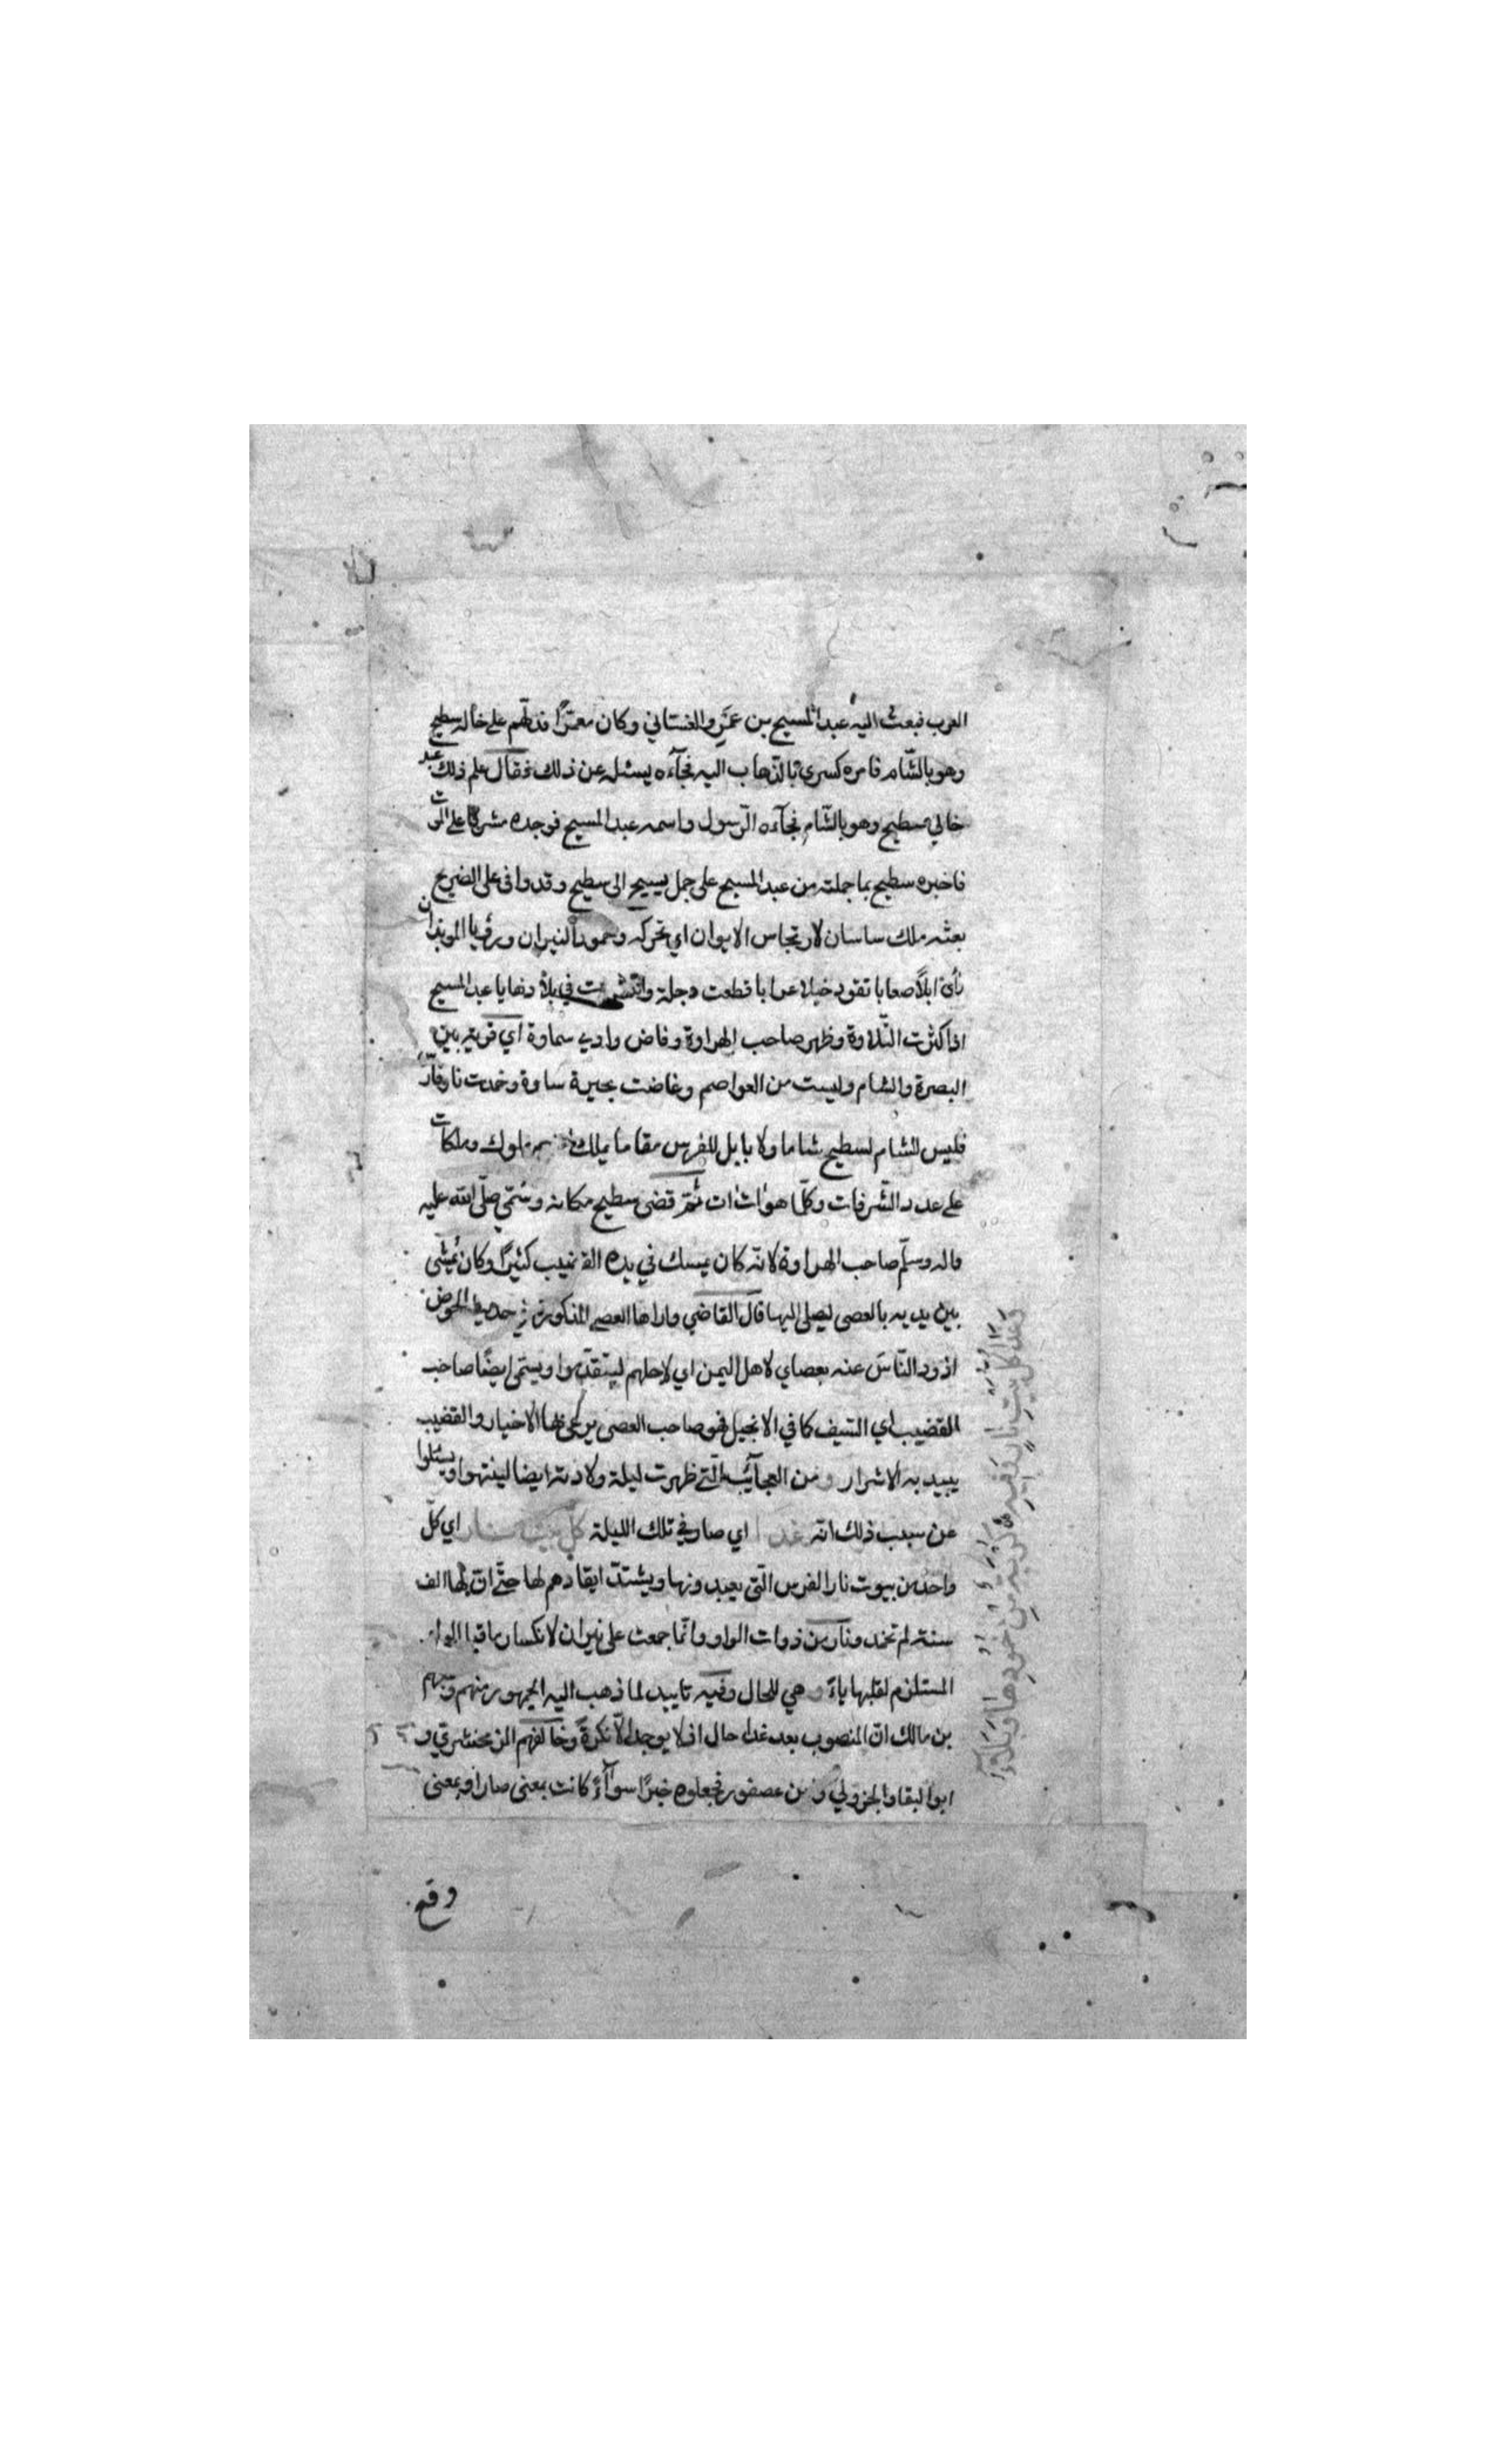 العرب فبعث اليه عبد المسيح بن عمرو الغساني وكان معمرًا فدلهم على خاله سطيح
وهو بالشام فامره كسرى بالذهاب اليه فجآءه يسئله عن ذلك فقال علم ذلك عند
خالي سطيح وهو بالشام فجآءه الرسول واسمه عبد المسيح فوجده مشرفا على الموت
فاخبره سطيح بما جملته من عبد المسيح على جمل يسيح الى سطيح وقد وافى على الضريح
بعثه ملك ساسان لارتجاس الايوان اي تحركه وخمود النيران ورؤيا الموبذان
رأى ابلاً صعابا تقود خيلا عرابا قطعت دجلة وانتشرت في بلادها يا عبد المسيح
اذا كثرت التلاوة وظهر صاحب الهراوة وفاض وادي سماوة اي قرية بين
البصرة والشام وليست من العواصم وغاضت بحيرة ساوة وخمدت نار فارس
فليس الشام لسطيح شاما ولا بابل للفرس مقاما يملك منهم ملوك وملكات
على عدد الشرفات وكلما هو اٰت اٰت ثم قضى سطيح مكانه وسمّي صلّى الله عليه
واله وسلّم صاحب الهراوة لانّه كان يمسك في يده القضيب كثيرًا وكان يُمشى
بين يديه بالعصى ليصلى اليها قال القاضي واراها العصى المذكورة في حديث الحوض
اذود النّاسَ عنه بعصاي لاهل اليمن اي لاجلهم ليتقدّموا ويسمّى ايضًا صاحب
القضيب اي السّيف كما في الانجيل فهو صاحب العصى يرعى بها الاخيار والقضيب
يبيد به الاشرار ومن العجآئب الّتي ظهرت ليلة ولادته ايضا لينتهوا ويسئلوا
عن سبب ذلك انه غدا اي صار في تلك الليلة كلّ بيت نار اي كلّ
واحد من بيوت نار الفرس الّتي يعبدونها ويشتدّ ايقادهم لها حتّى انّ لها الف
سنة لم تخمد ونار من ذوات الواو وانّما جمعت على نيران لانكسار ما قبل الواو
المستلزم لقلبها ياءً و هي للحال وفيه تاييد لما ذهب اليه الجمهور منهم
بن مالك انّ المنصوب بعد غدا حال اذ لا يوجد الّا نكرةً وخالفهم الزمخشري و
ابو البقا والجزولي و بن عصفور فجعلوه خبرًا سوآءً كانت بمعنى صار او بمعنى
وقع
وغدا كل بيت نار وفيه كربة من خمودها وبلاء